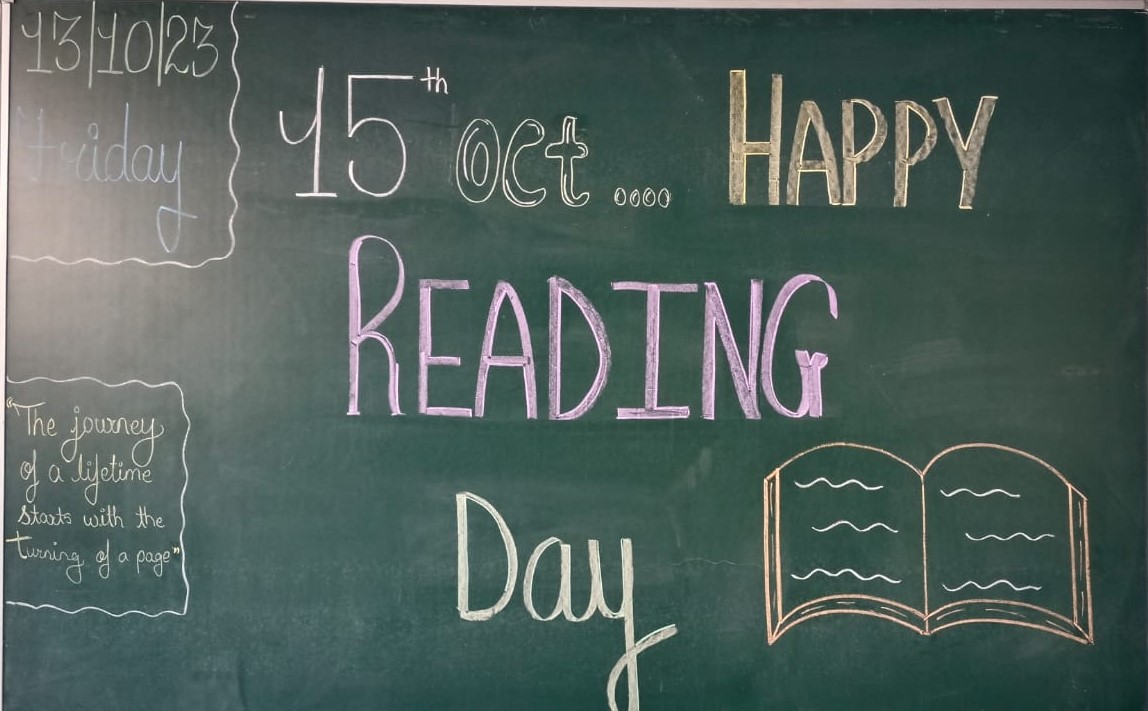 13/10/23
Friday
15th Oct .... HAPPY
READING
Day
"The journey
of a lifetime
starts with the
turning of a page"